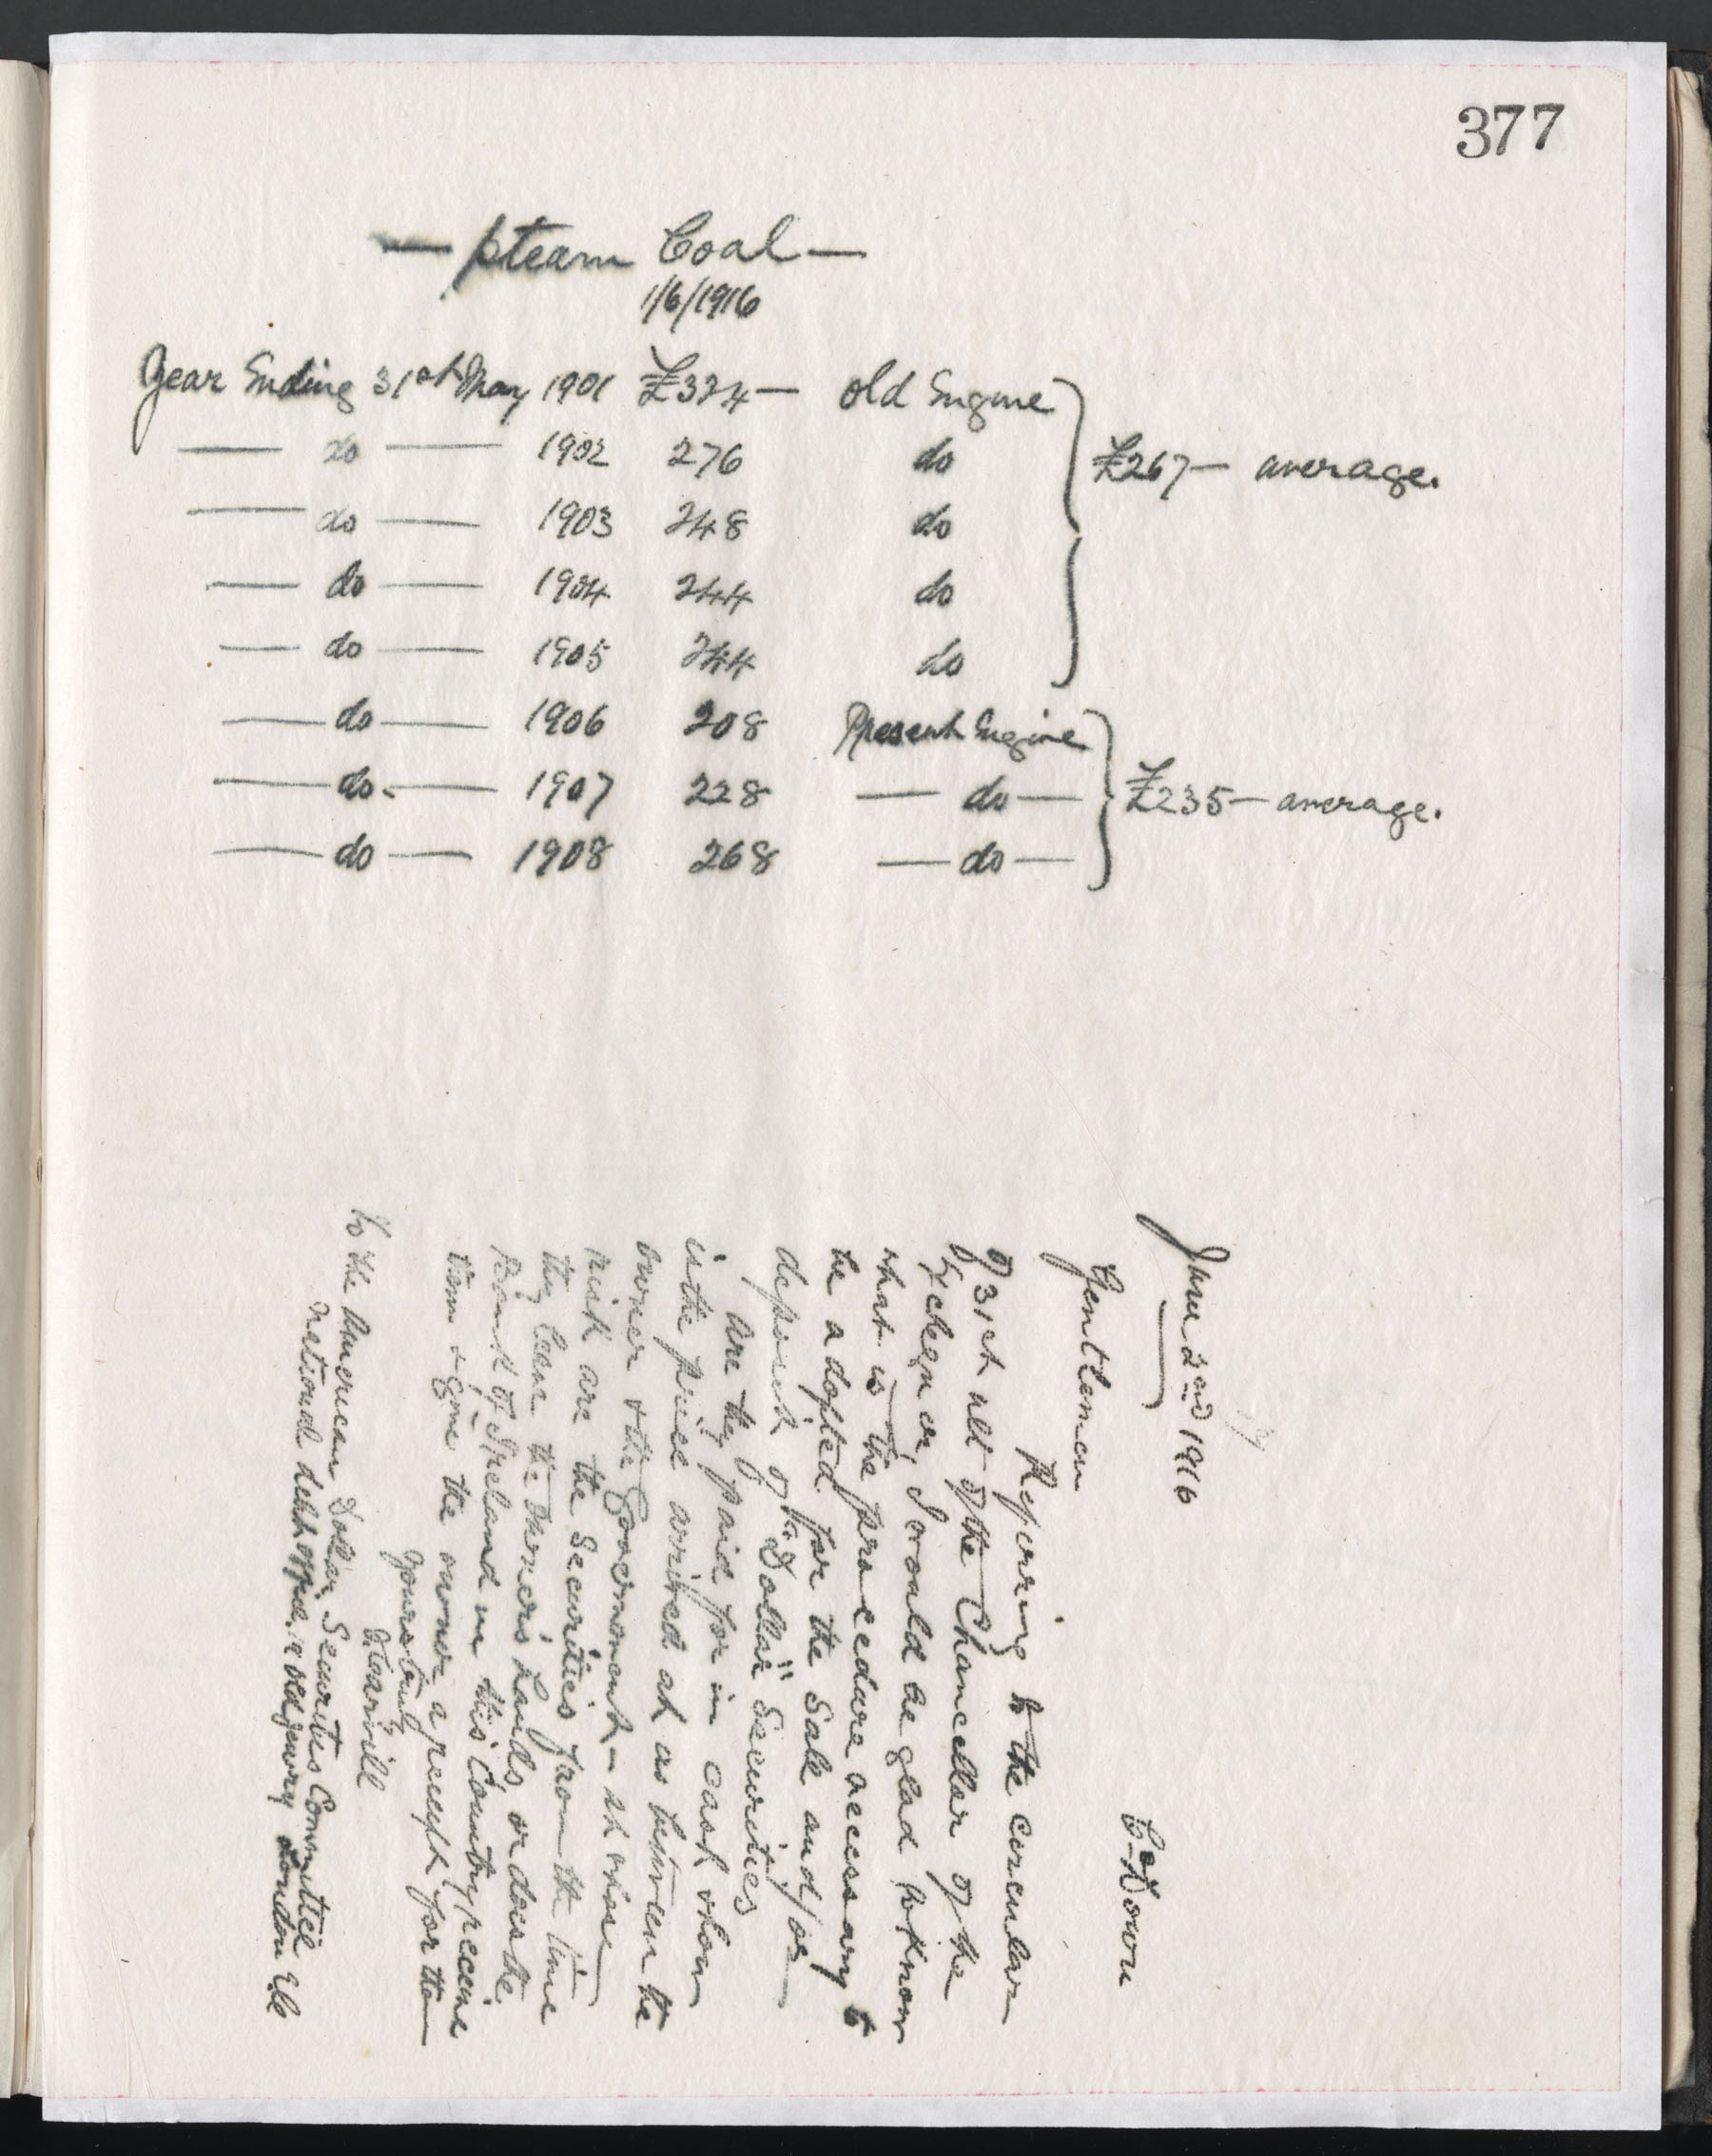 377
— Steam Coal —
1/6/1916
Year Ending 31st May 1901 £324 — Old Engine
— do — 1902 276 do £267 — average.
— do — 1903 248 do
— do — 1904 244 do
— do — 1905 244 do
— do — 1906 208 Present Engine
— do — 1907 228 — do — £235 — average.
— do — 1908 268 — do —
June 2nd 1916 Co Down
Gentlemen
Referring to the circular
of 31st ult of the Chancellor of the
Exchequer, I would be glad to know
what is the procedure necessary to
be adopted for the Sale and/or
deposit of "Dollar" Securities
Are they paid for in cash when
is the price arrived at as between the
owner & the Government – at whose
risk are the Securities from the time
they leave the owners hands, or does the
Bank of Ireland in this Country receive
them & give the owner a receipt for them
Yours truly
To the American Dollar Securities Committee
National debt office, Old Jewry London EC